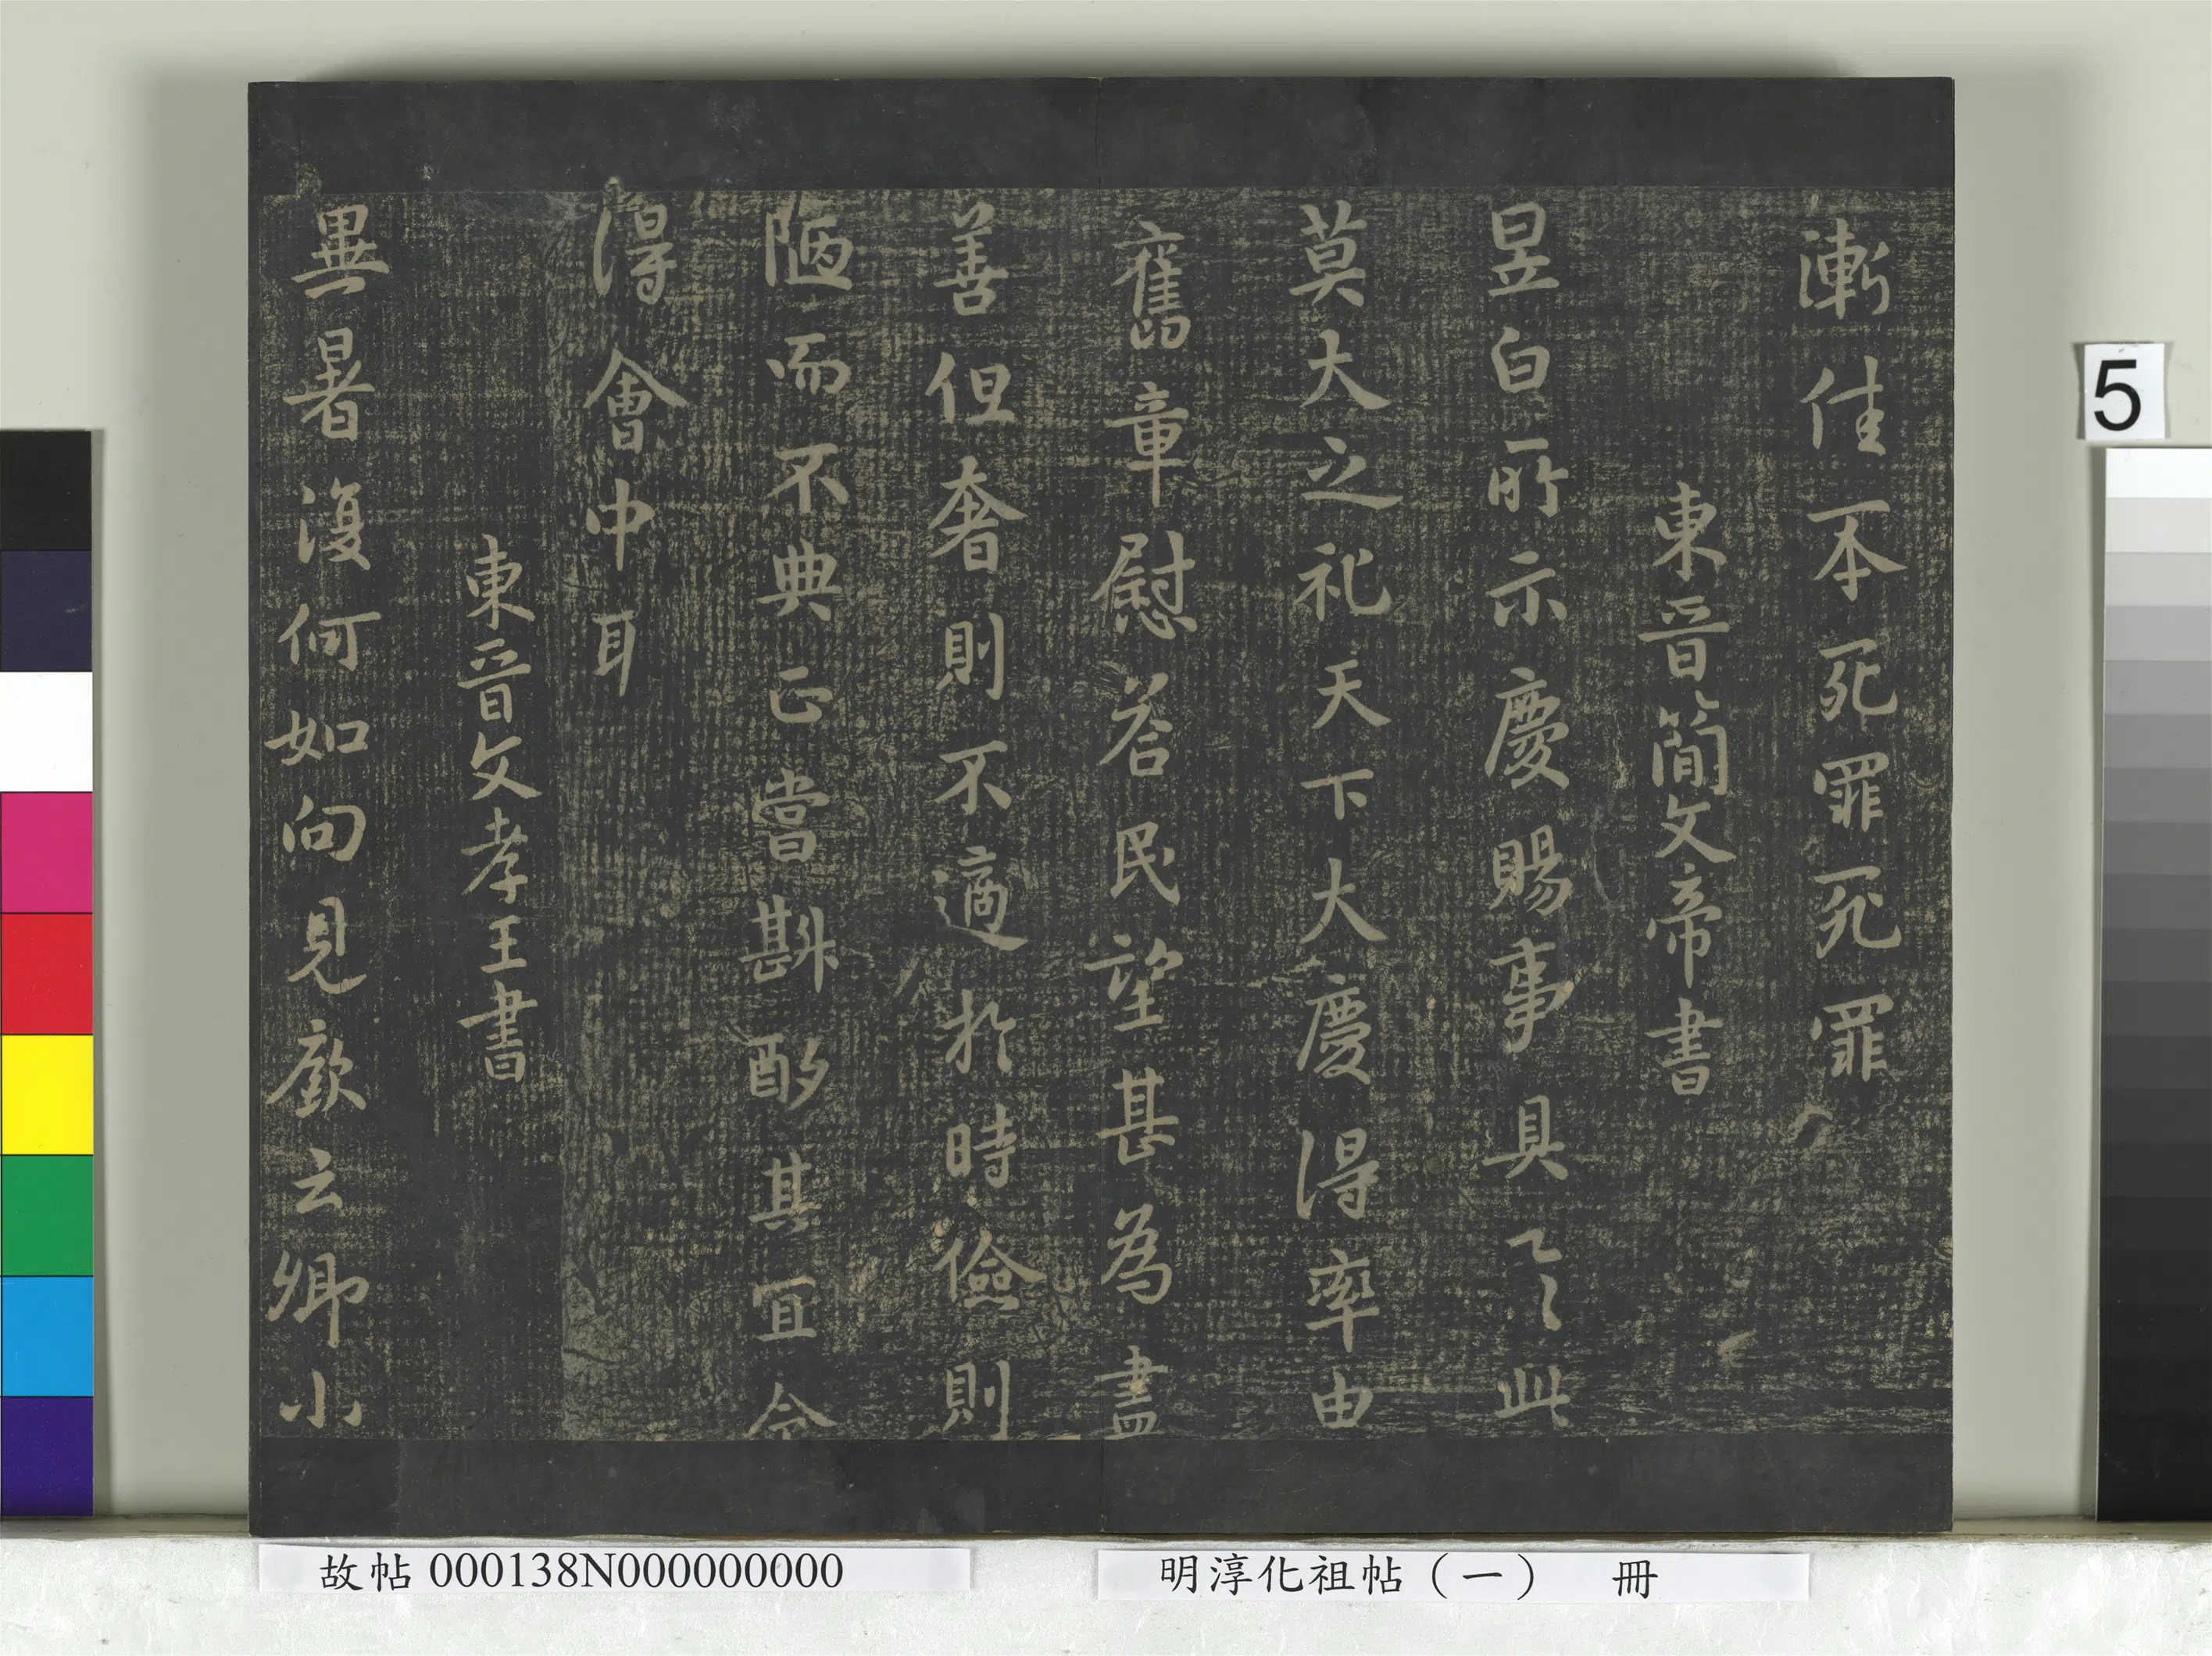 漸佳不死罪死罪
東晉簡文帝書
昱白所示慶賜事具之此
莫大之祀天下大慶得率由
舊章慰荅民望甚為盡
善但奢則不適於時儉則
陋而不典正當斟酌其宜令
得會中耳
東晉文孝王書
異暑没何如向見歡云卿小
5
故帖000138N000000000
明淳化祖帖（一） 冊